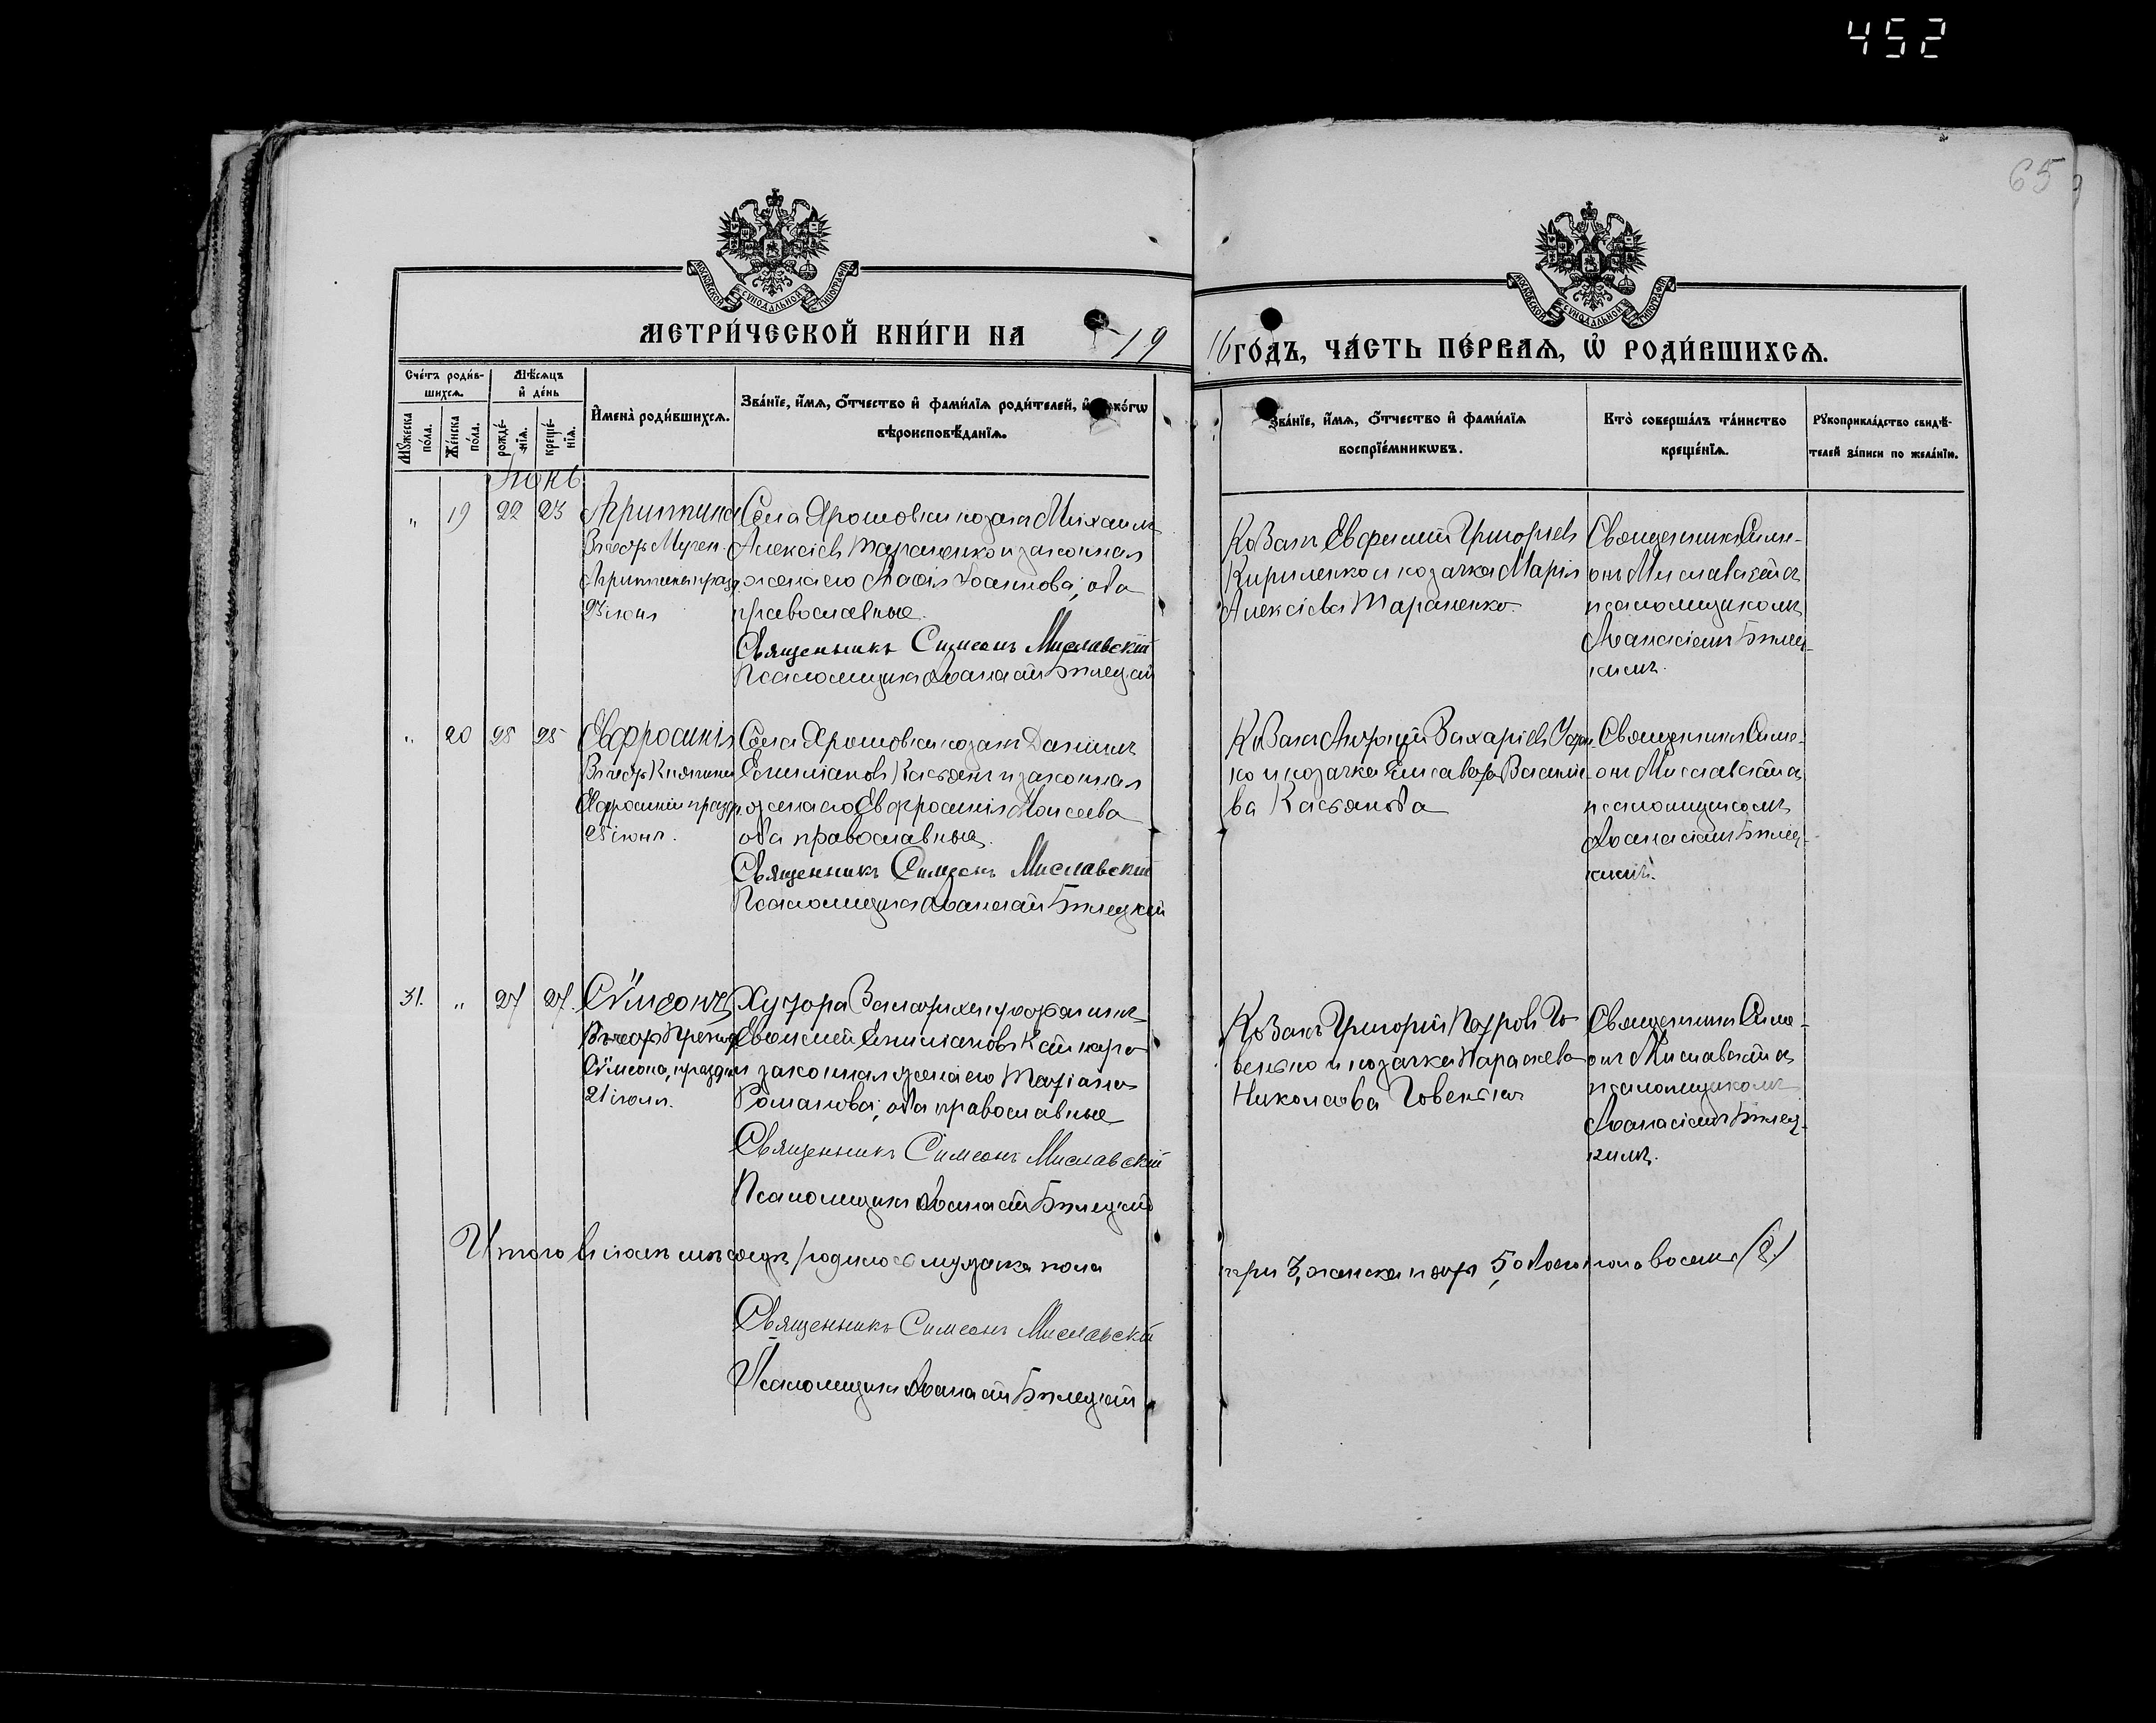 452
65
МОСКОВСКОЙ СѴНОДАЛЬНОЙ ТИПОГРАФІИ
МОСКОВСКОЙ СѴНОДАЛЬНОЙ ТИПОГРАФІИ
МЕТРИ́ЧЕСКОЙ КНИ́ГИ НА 19
16 ГО́ДЪ, ЧА́СТЬ ПЕ́РВАѦ, Ѡ҆ РОДИ́ВШИХСѦ.
Сче́тъ роди́в-
шихсѧ.
Мꙋ́жеска по́ла.
Же́нска по́ла.
Мѣ́сѧцъ
и҆ де́нь
рожде́-
нїѧ.
креще́-
нїѧ.
И҆мена̀ роди́вшихсѧ.
Зва́нїе, и҆́мѧ, ѻ҆́тчество и҆ фами́лїѧ роди́телей, и҆ ко́гѡ
вѣроисповѣ́данїѧ.
Зва́нїе, и҆́мѧ, ѻ҆́тчество и҆ фами́лїѧ
воспрїе́мникѡвъ.
Кто̀ соверша́лъ та́инство
креще́нїѧ.
Рꙋкоприкла́дство свидѣ́-
телей за́писи по жела́нїю.
Іюнь
" 19 22 23
Агриппина
Въ честь Мучен.
Агриппины празд.
23 іюня
Села Ярошовки козакъ Михаилъ
Алексіевъ Тараненко и законная
жена его Іоаннова; оба
православные.
Священникъ Симеонъ Миславскій
Псаломщикъ Аѳанасій Билецкій
Козакъ Евфимій Григоріевъ
Кириленко и козачка Марія
Алексіева Тараненко
Священникъ Симе-
онъ Миславскій съ
псаломщикомъ
Аѳанасіемъ Билец-
кимъ.
" 20 25 25
Евфросинія
Въ честь Княгини
Евфросиніи празд.
25 іюня.
Села Ярошовки козакъ Даніилъ
Емиліановъ Касьянъ и законная
жена его Евфросинія Моисеева
оба православные.
Священникъ Симеонъ Миславскій
Псаломщикъ Аѳанасій Билецкій
Козакъ Андрей Захаріевъ
ко и козачка Елисавета Василіе-
ва Касьянова
Священникъ Симе-
онъ Миславскій съ
псаломщикомъ
Аѳанасіемъ Билец-
кимъ.
31. " 27 27.
Сѵмеонъ
Въ честь Препод.
Сѵмеона, праздн.
21 іюля.
Хутора крестьянинъ
Евѳимій Емиліановъ
и законная жена его Татіана
Романова; оба православные
Священникъ Симеонъ Миславскій
Псаломщикъ Аѳанасій Билецкій
Козакъ Григорій Петровъ Го-
венько и козачка Параскева
Николаева Говенько
Священникъ Симе-
онъ Миславскій съ
псаломщикомъ
Аѳанасіемъ Билец-
кимъ.
Итого въ іюнѣ мѣсяцѣ родилось мужска пола
три 3, женска пять 5, обоего пола восемь (8.)
Священникъ Симеонъ Миславскій
Псаломщикъ Аѳанасій Билецкій